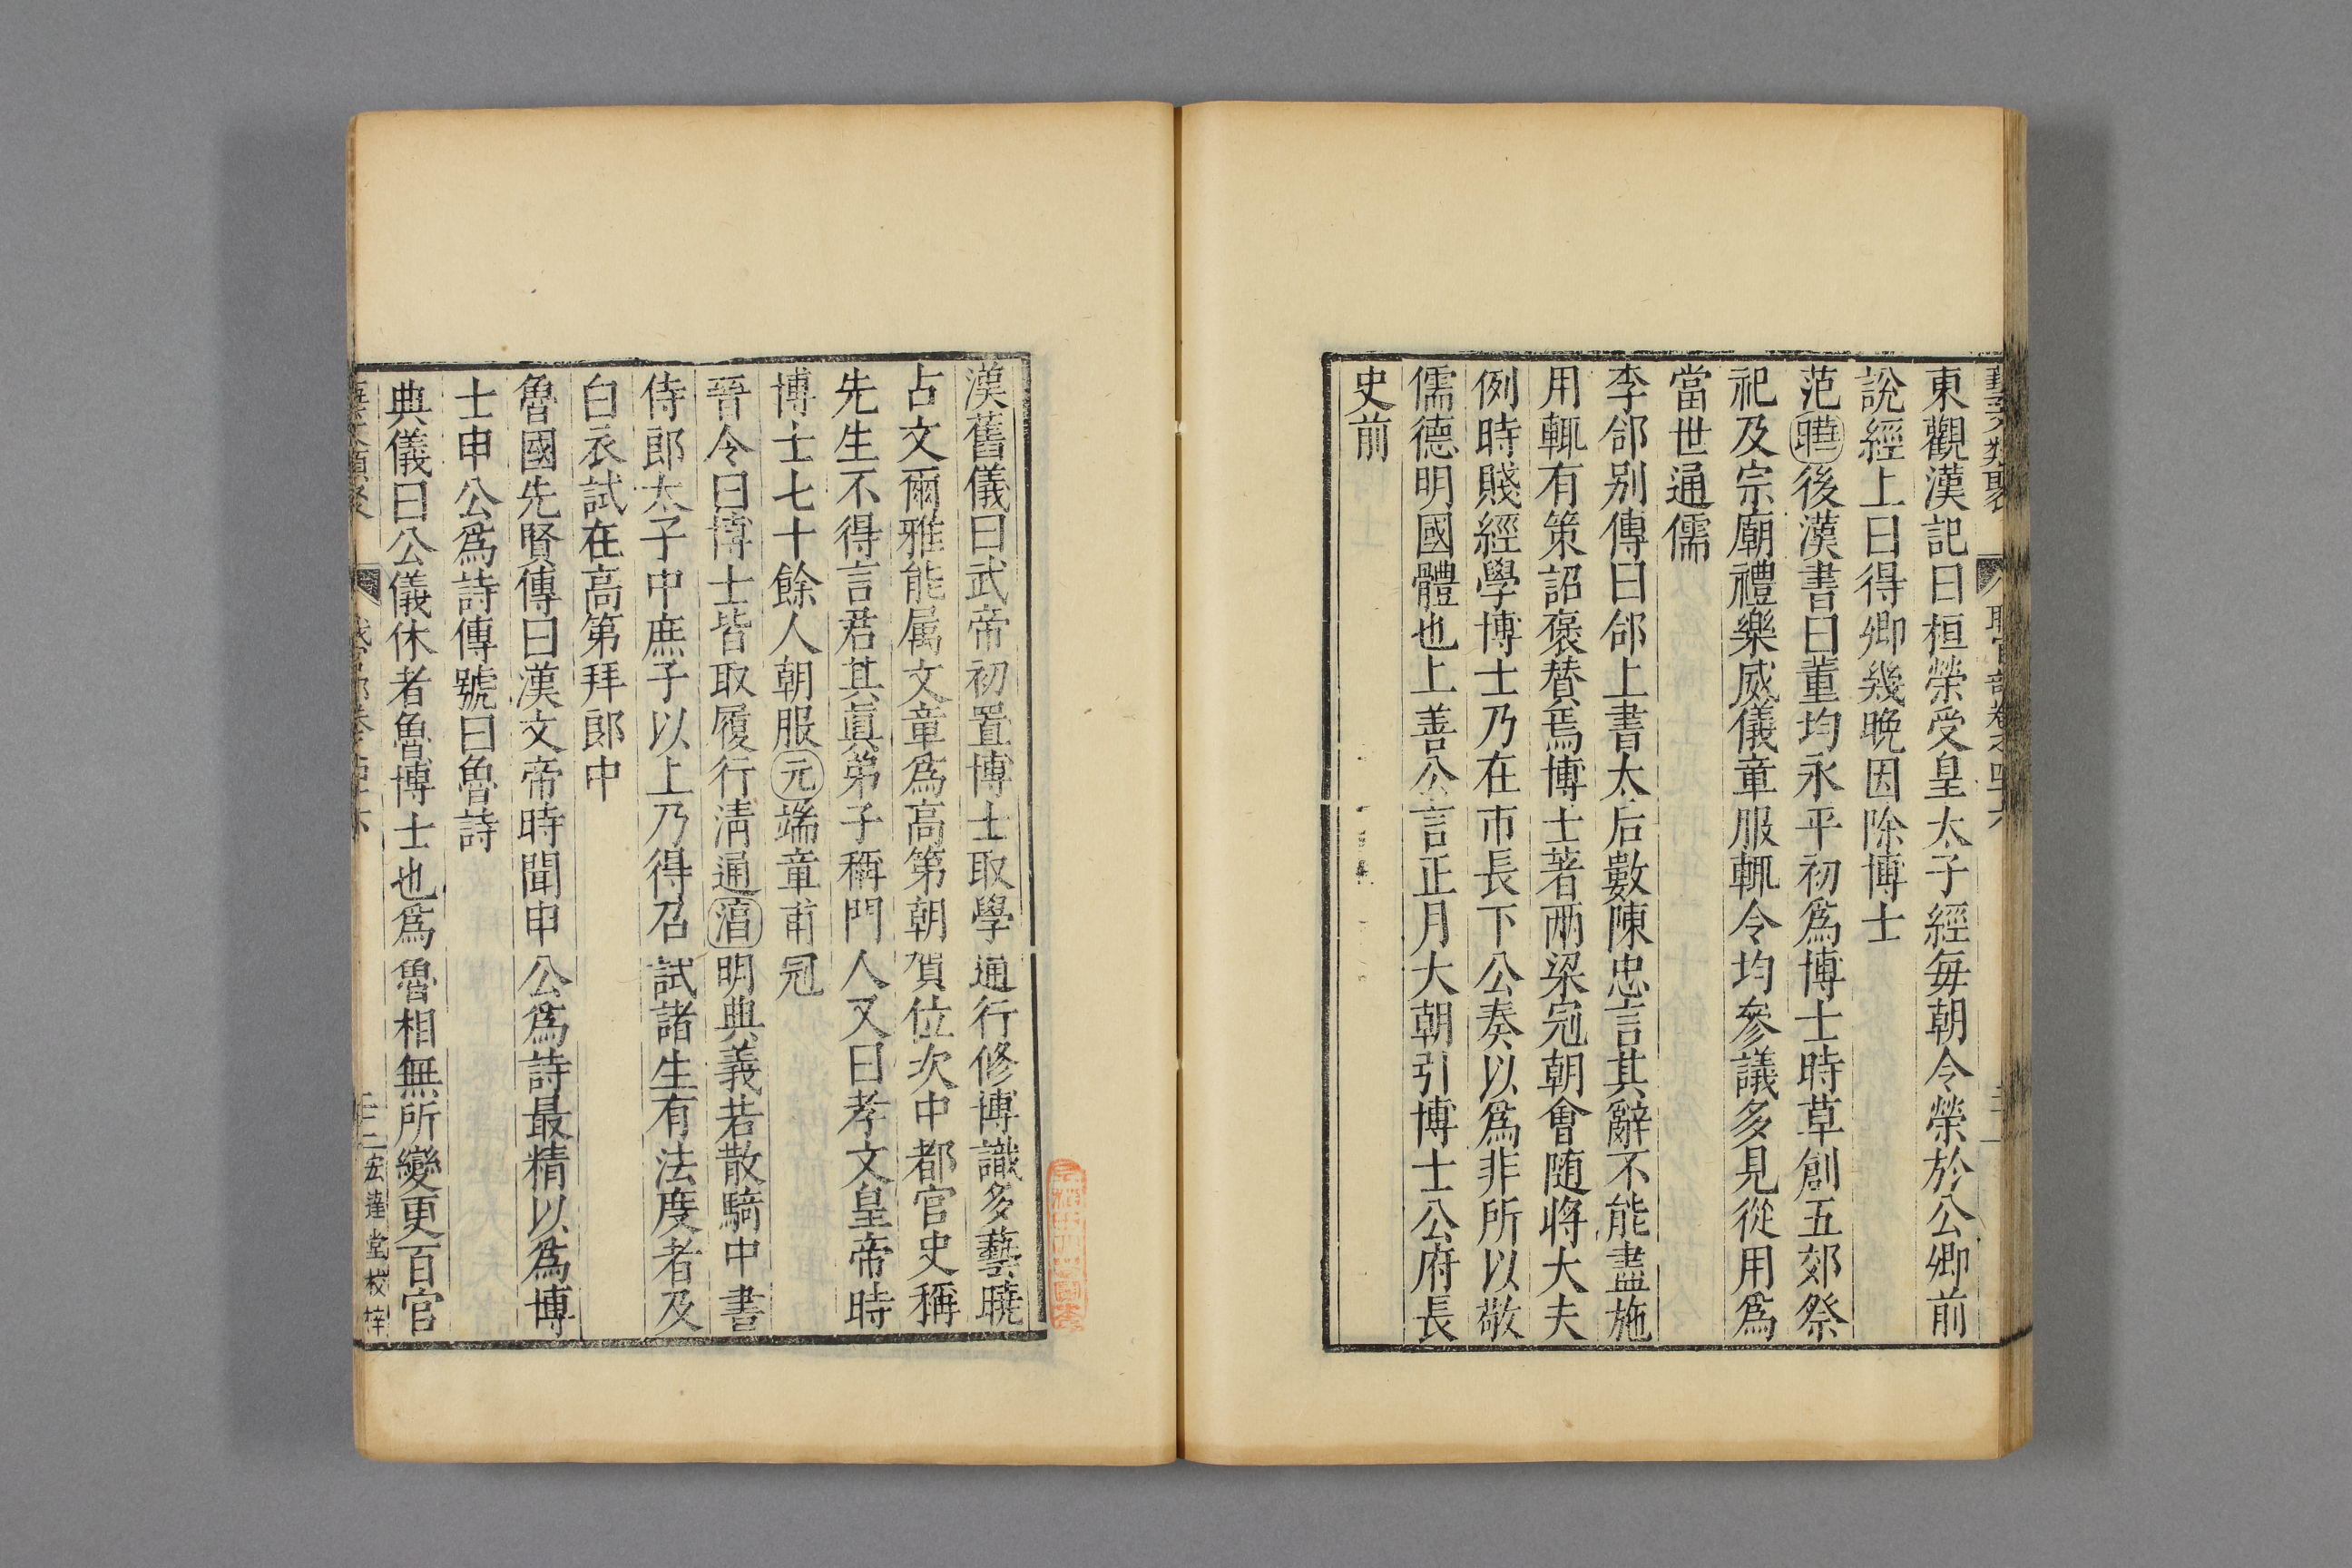 東觀漢記曰桓榮受皇太子經每朝令榮於公卿前
說經上曰得卿幾晚因除博士
范曄後漢書曰董均永平初爲博士時草創五郊祭
祀及宗廟禮樂威儀章服輒令均參議多見從用爲
當世通儒
李郃别傳曰郃上書太后數陳忠言其辭不能盡施
用輒有策詔褒賛焉博士著兩梁冠朝會随將大夫
例時賤經學博士乃在市長下公奏以爲非所以敬
儒德明國體也上善公言正月大朝引博士公府長
史前
漢舊儀曰武帝初置博士取學通行修博識多藝曉
占文爾雅能属文章爲高第朝賀位次中都官史稱
先生不得言君其眞弟子稱門人又曰孝文皇帝時
博士七十餘人朝服元端章甫冠
晉令曰博士皆取履行淸通滛明典義若散騎中書
侍郎太子中庶子以上乃得召試諸生有法度者及
白衣試在高第拜郎中
魯國先賢傳曰漢文帝時聞申公爲詩最精以爲博
士申公爲詩傳號曰魯詩
典儀曰公儀休者魯博士也爲魯相無所變更百官
宏達堂校梓